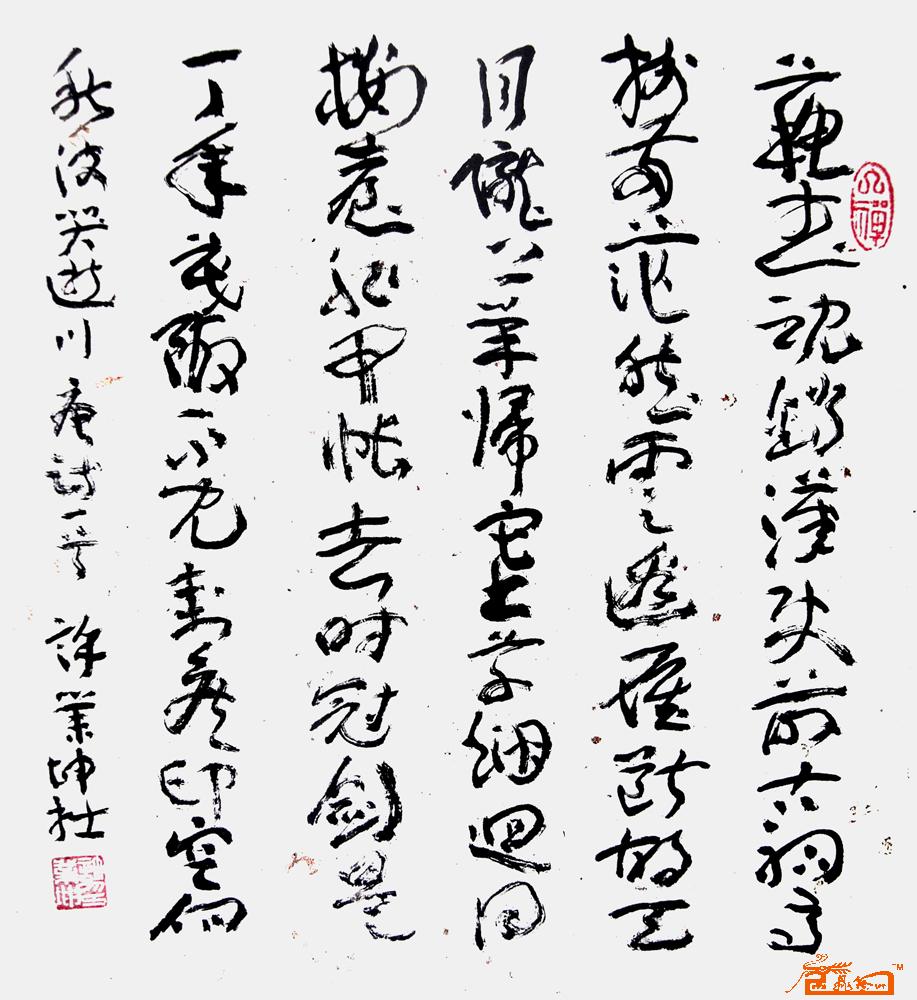 蘇武魂銷漢使前古祠高
樹兩茫然雲邊雁斷胡天
月隴上羊歸塞草烟迴日
樓臺非甲帳去時冠劍是
丁年茂陵不見封侯印空向
秋波哭逝川 唐詩一首 許業坤